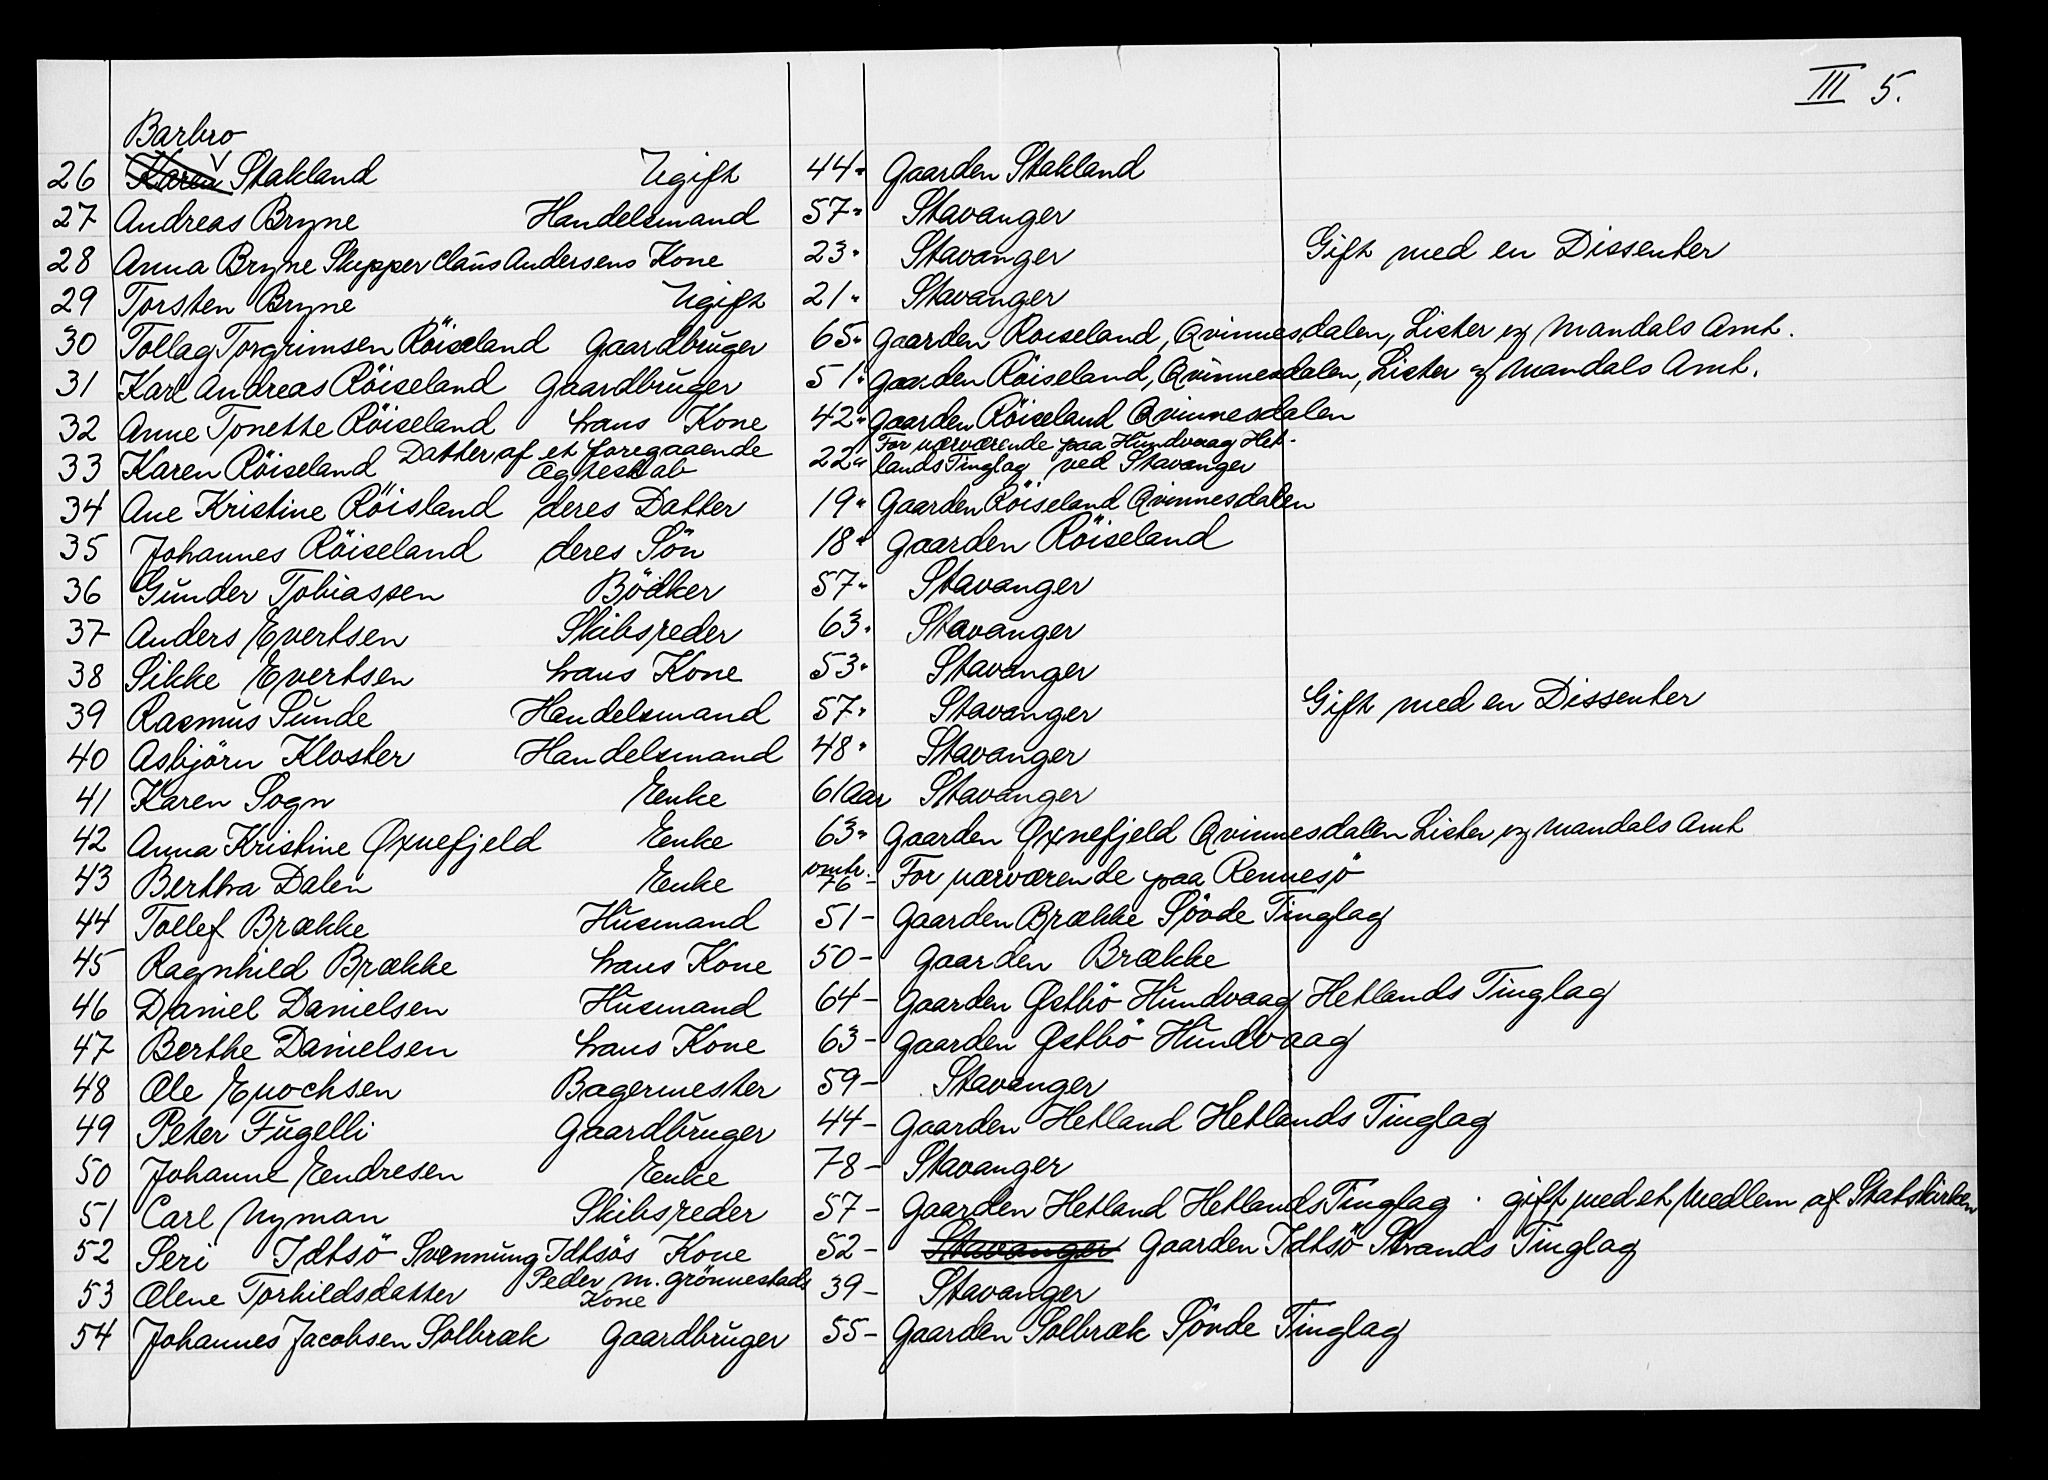 III 5.
Barbro
26 Karen Stakland Ugift 44" Gaarden Stakland
27 Andreas Bryne Handelsmand 57" Stavanger
28 Anna Bryne Skipper Claus Andersens Kone 23" Stavanger Gift med en Dissenter
29 Torsten Bryne Ugift 21" Stavanger
30 Tollag Torgrimsen Röiseland Gaardbruger 65" Gaarden Roiseland, Qvinnesdalen, Lister og Mandals Amt.
31 Karl Andreas Röiseland Gaardbruger 51" Gaarden Röiseland, Qvinnesdalen, Lister og Mandals Amt.
32 Anne Tonette Röiseland hans Kone 42" Gaarden Röiseland Qvinnesdalen
33 Karen Röiseland Datter af et foregaaende Ægteskab 22" For nærværende paa Hundvaag Het-
lands Tinglag ved Stavanger
34 Ane Kristine Röisland deres Datter 19" Gaarden Röiseland Qvinnesdalen
35 Johannes Röiseland deres Sön 18" Gaarden Röiseland
36 Gunder Tobiassen Bödker 57" Stavanger
37 Anders Evertsen Skibsreder 63" Stavanger
38 Sikke Evertsen hans Kone 53" Stavanger
39 Rasmus Sunde Handelsmand 57" Stavanger Gift med en Dissenter
40 Asbjörn Kloster Handelsmand 48" Stavanger
41 Karen Sogn Enke 61 Aar Stavanger
42 Anna Kristine Øxnefjeld Enke 63" Gaarden Øxnefjeld Qvinnesdalen Lister og Mandals Amt
43 Bertha Dalen Enke omtr. 76 - For nærværende paa Rennesö
44 Tollef Brække Husmand 51 - Gaarden Brække Sövde Tinglag
45 Ragnhild Brække hans Kone 50 - Gaarden Brække
46 Daniel Danielsen Husmand 64 - Gaarden Østbö Hundvaag Hetlands Tinglag
47 Berthe Danielsen hans Kone 63 - Gaarden Østbö Hundvaag
48 Ole Enochsen Bagermester 59 - Stavanger
49 Peter Fugelli Gaardbruger 44 - Gaarden Hetland Hetlands Tinglag
50 Johanne Endresen Enke 78 - Stavanger
51 Carl Nyman Skibsreder 57 - Gaarden Hetland Hetlands Tinglag . gift med et Medlem af Statskirken
52 Seri Idtsö Svennung Idtsös Kone 52 - Stavanger Gaarden Idtsö Strands Tinglag
53 Olene Torhildsdatter Peder M. Grönnestads Kone 39 - Stavanger
54 Johannes Jacobsen Solbræk Gaardbruger 55 - Gaarden Solbræk Sövde Tinglag